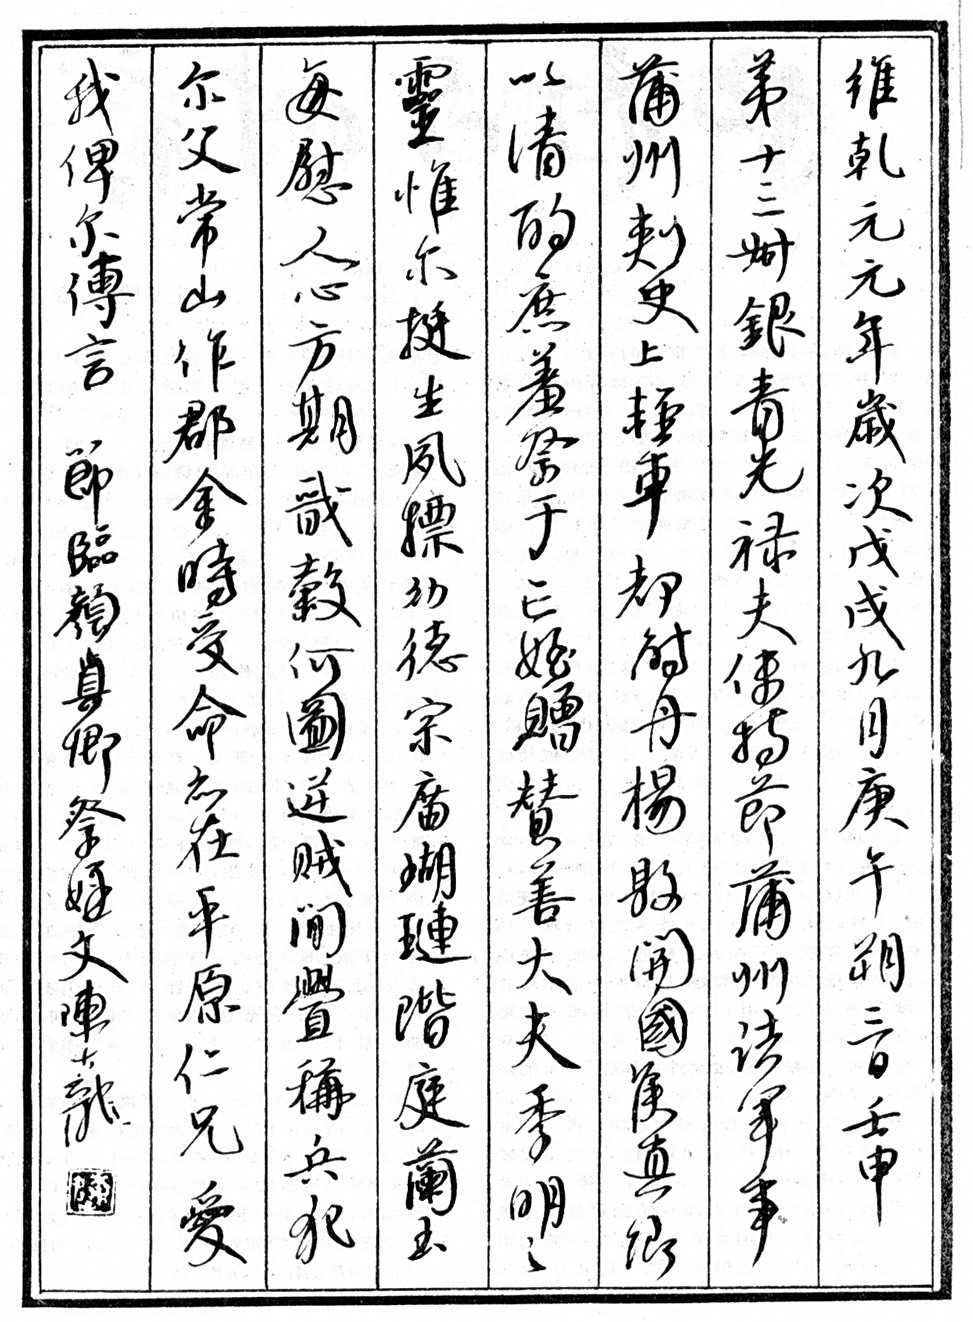 維乾元元年歲次戊戌九月庚午朔三日壬申
第十三姪銀青光祿夫使持節蒲州諸軍事
蒲州刺史上輕車都尉丹楊縣開國侯真卿
以清酌庶羞祭于亡姪贈贊善大夫季明之
靈惟尔挺生夙標幼德宗廟瑚璉階庭蘭玉
每慰人心方期戩穀何圖逆賊間釁稱兵犯
尔父常山作郡余時受命亦在平原仁兄愛
我俾尔傳言 節臨顏真卿祭姪文陳大龍